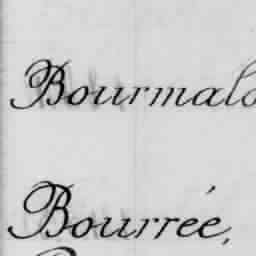 Bourmalo
Bourrée,